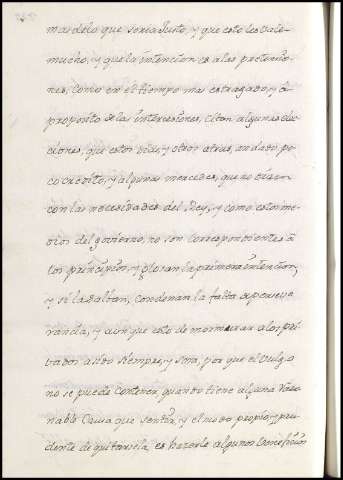 mas delo que seria Justo, y que esto les vale
mucho, y que la intencion es alas pretensio-
nes, como en el tiempo mas estragado, y â
proposito de las intercesiones, citan algunas elec
ciones, que estos dias, y otros atras, an dado po
co credito, y algunas mercedes, que no dicen
con las necesidades del Rey, y como estos me
dios del govierno, no son correspondientes â
los principios, y glosan la primera intencion,
y si la daltan, condenan la falta de perseve
rancia, y aun que esto de mormurar a los pri
vados a sido siempre, y sera, por que el Vulgo
no se puede contener, quando tiene alguna razo
nable Causa que sentir, y el modo propio, y pru
dente de quitarsela, es hazerle algunos Beneficios